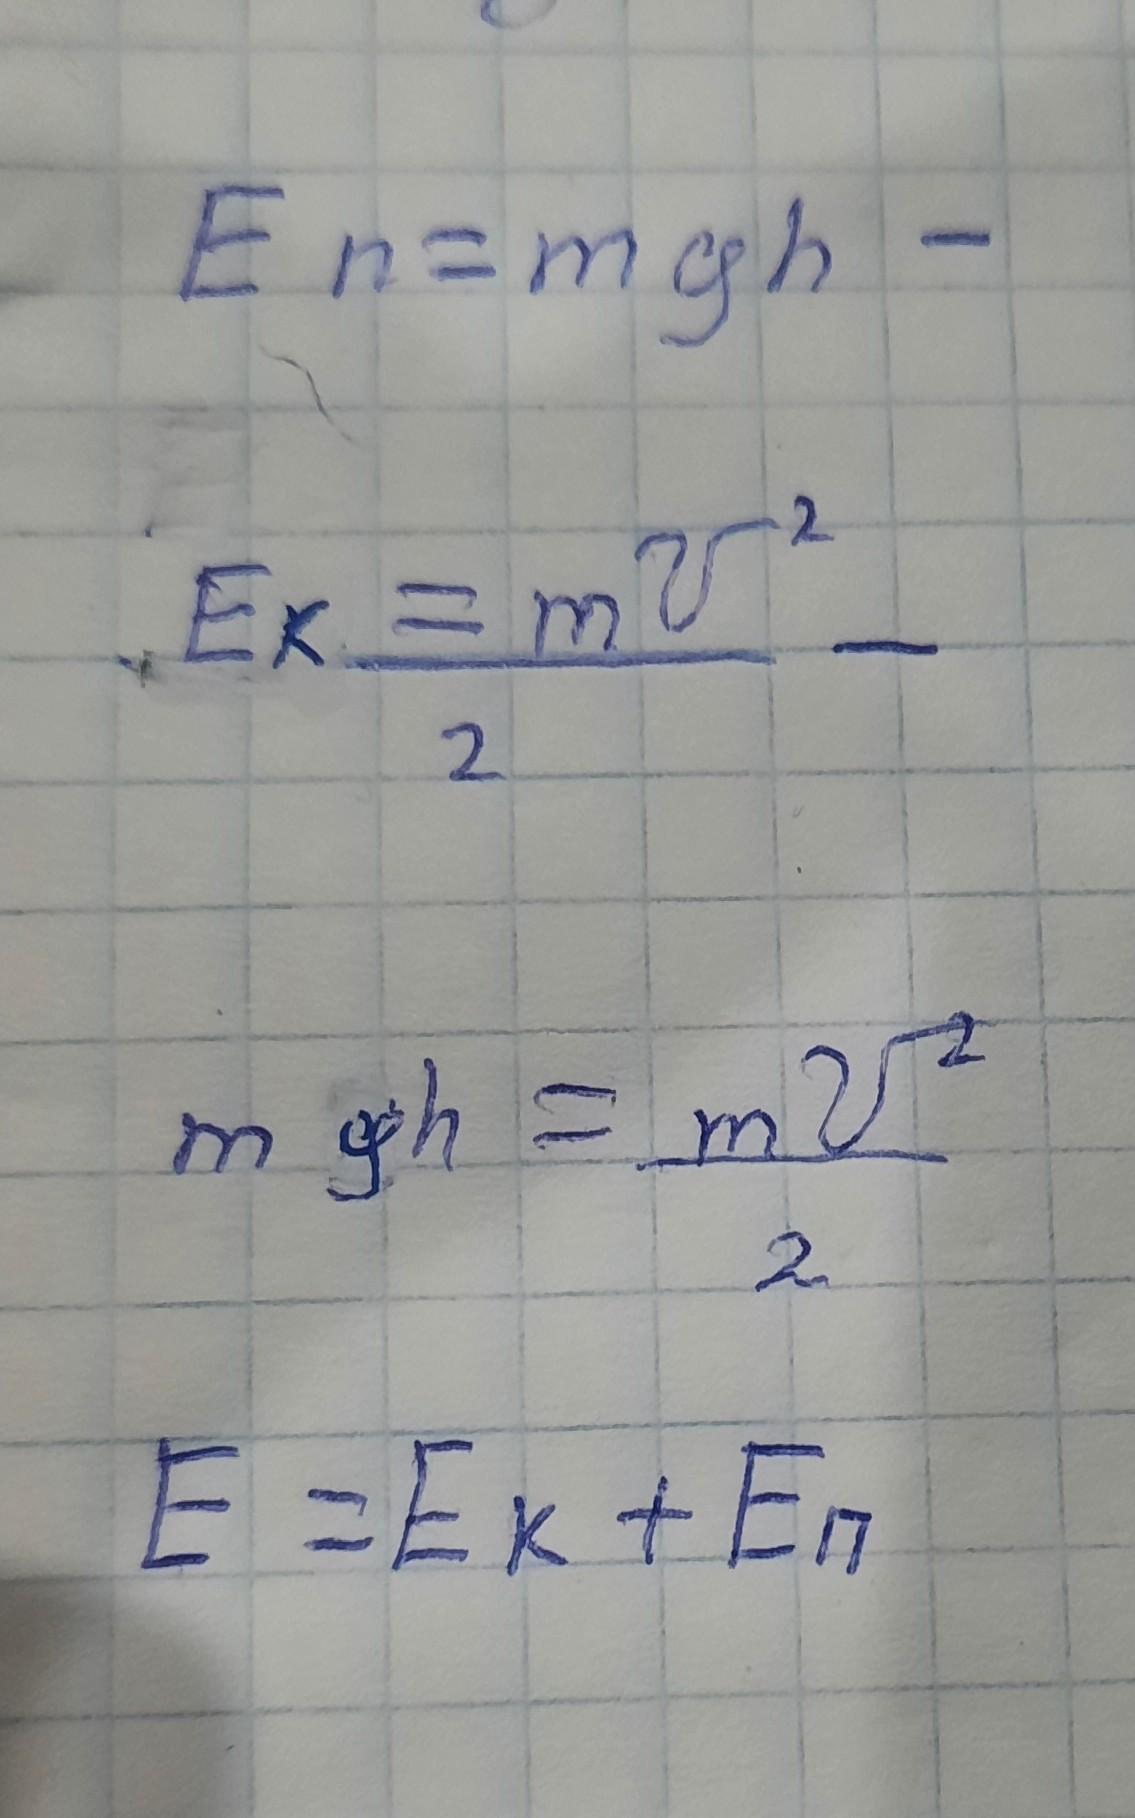 Eп = mgh -
Eк = mv²/2 -
mgh = mv²/2
E = Eк + Eп